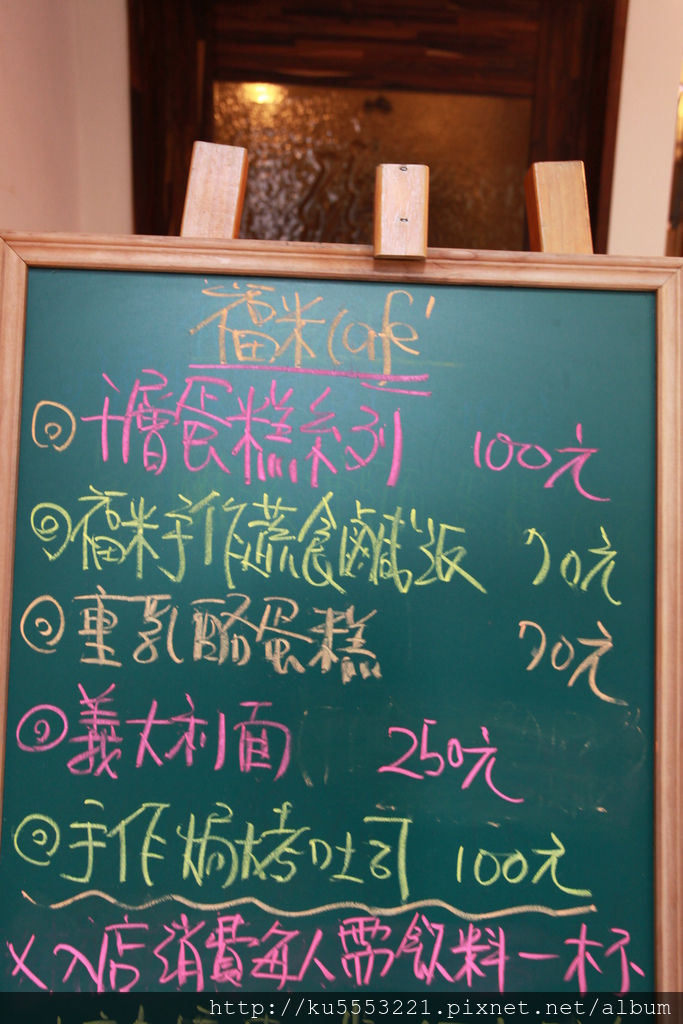 福米Café
◎千層蛋糕系列 100元
◎福米手作蔬食鹹派 70元
◎重乳酪蛋糕 70元
◎義大利面 250元
◎手作焗烤吐司 100元
×入店消費每人需飲料一杯
http://ku5553221.pixnet.net/album